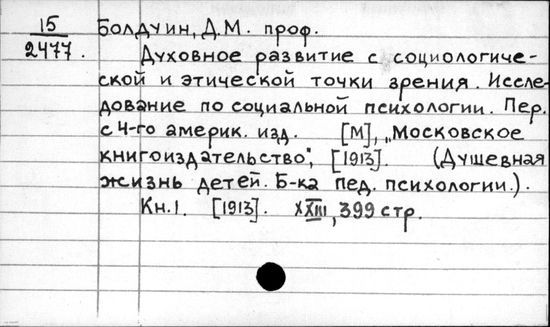 15
2477.
Болдуин, Д.М. проф.
Духовное развитие с социологиче-
ской и этической точки зрения. Иссле-
дование по социальной психологии. Пер.
с 4-го америк. изд. [М], „Московское
книгоиздательство", [1913]. (Душевная
жизнь детей. Б-ка пед. психологии.).
Кн.1. [1913]. XXIII, 399 стр.